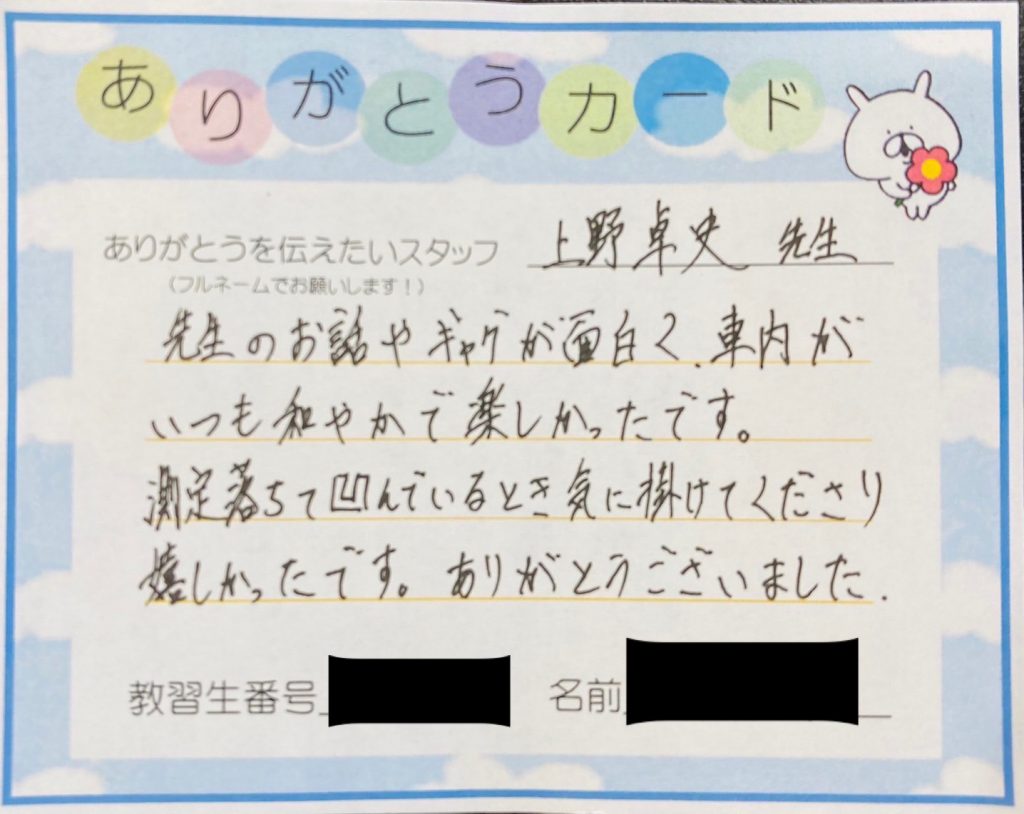 ありがとうカード
ありがとうを伝えたいスタッフ 上野卓史 先生
(フルネームでお願いします!)
先生のお話やギャグが面白く、車内が
いつも和やかで楽しかったです。
測定落ちて凹んでいるとき気に掛けてくださり
嬉しかったです。ありがとうございました.
教習生番号 名前